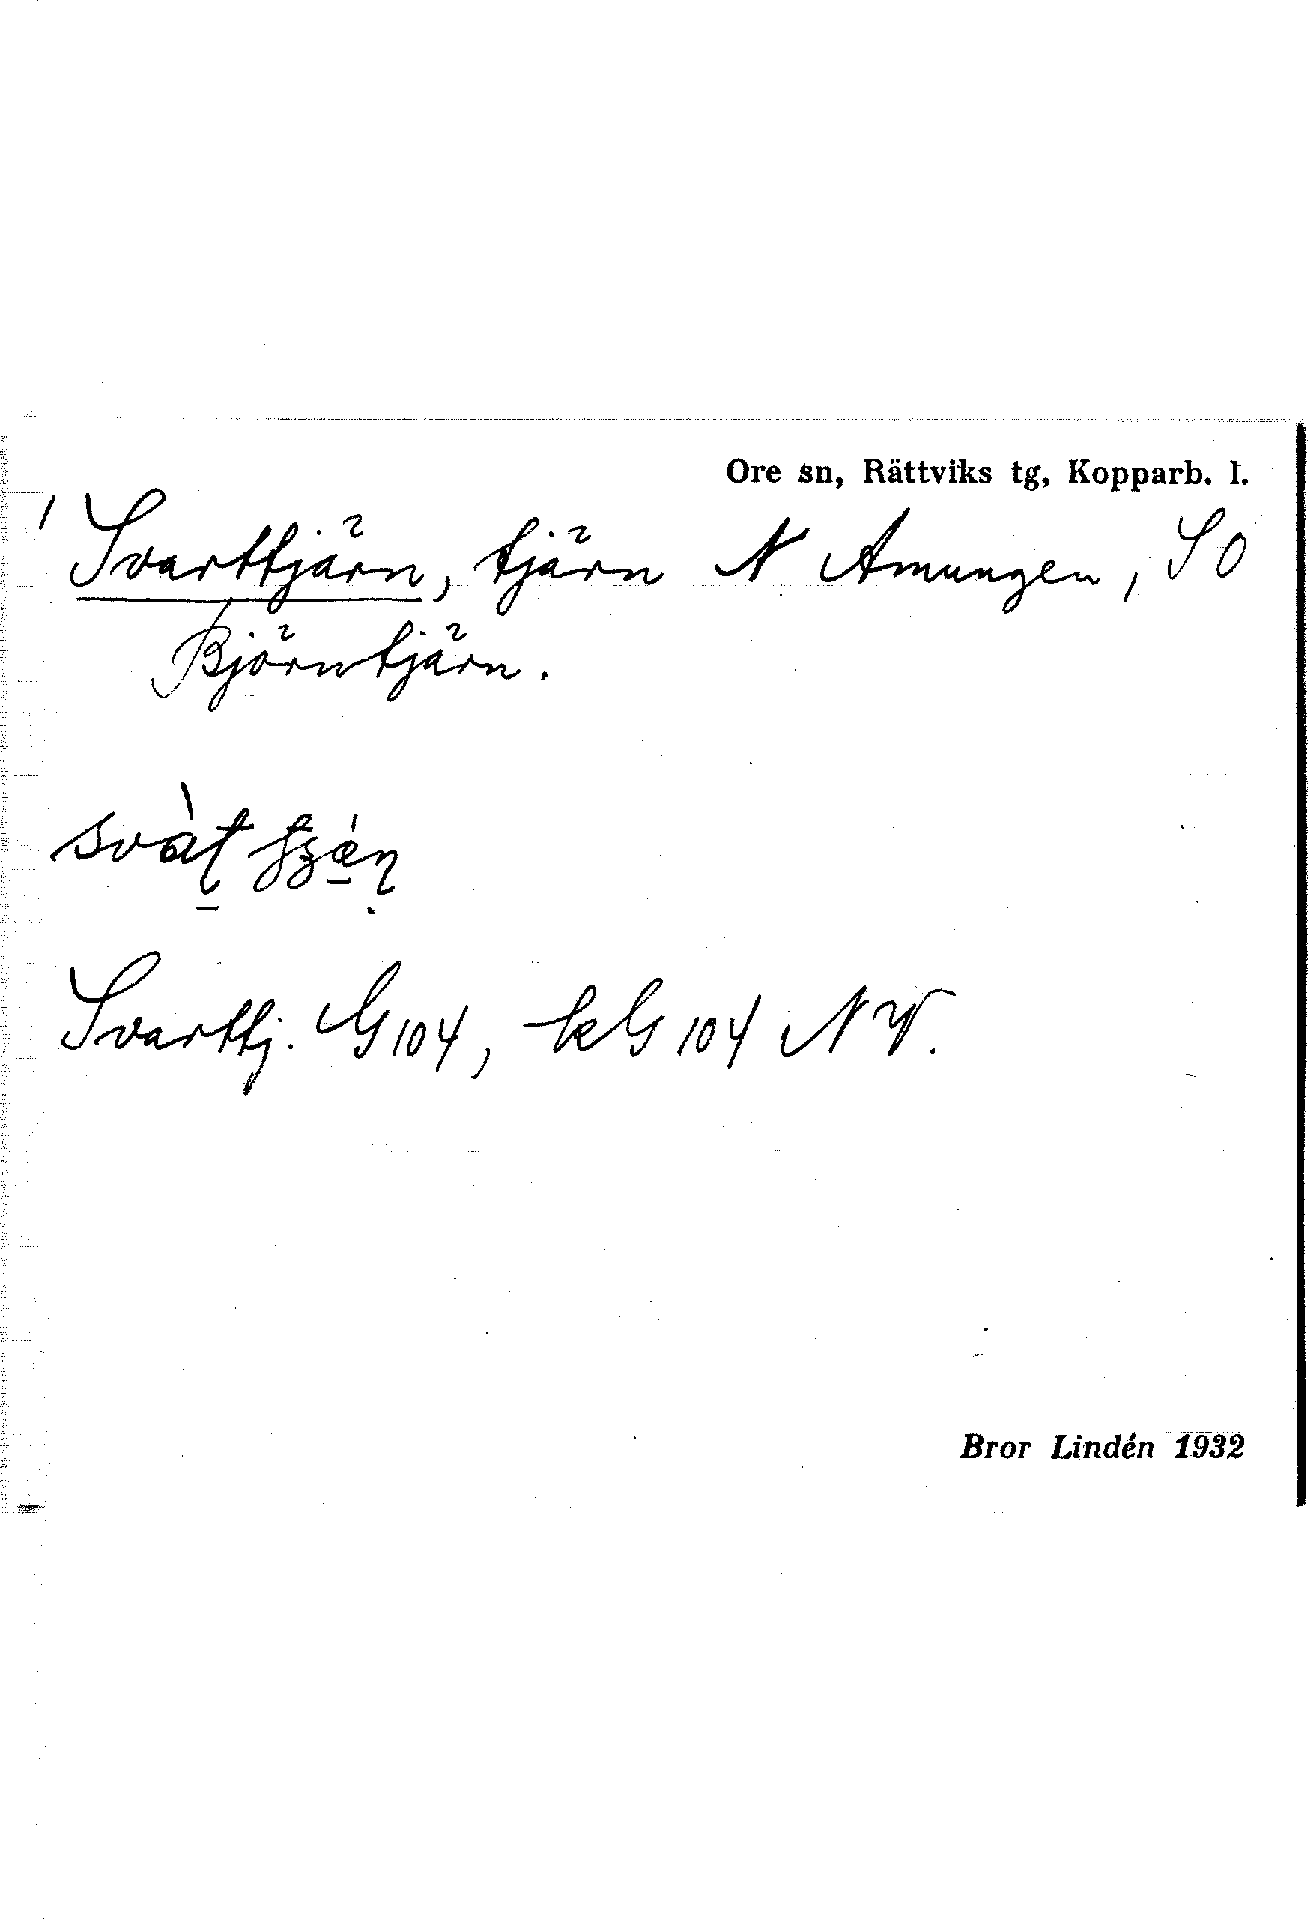 Ore sn, Rättviks tg, Kopparb. l.
Svarttjärn, tjärn N Amungen, SO
Björntjärn.
Svarttj. G 104, kG 104 NV.
Bror Lindén 1932